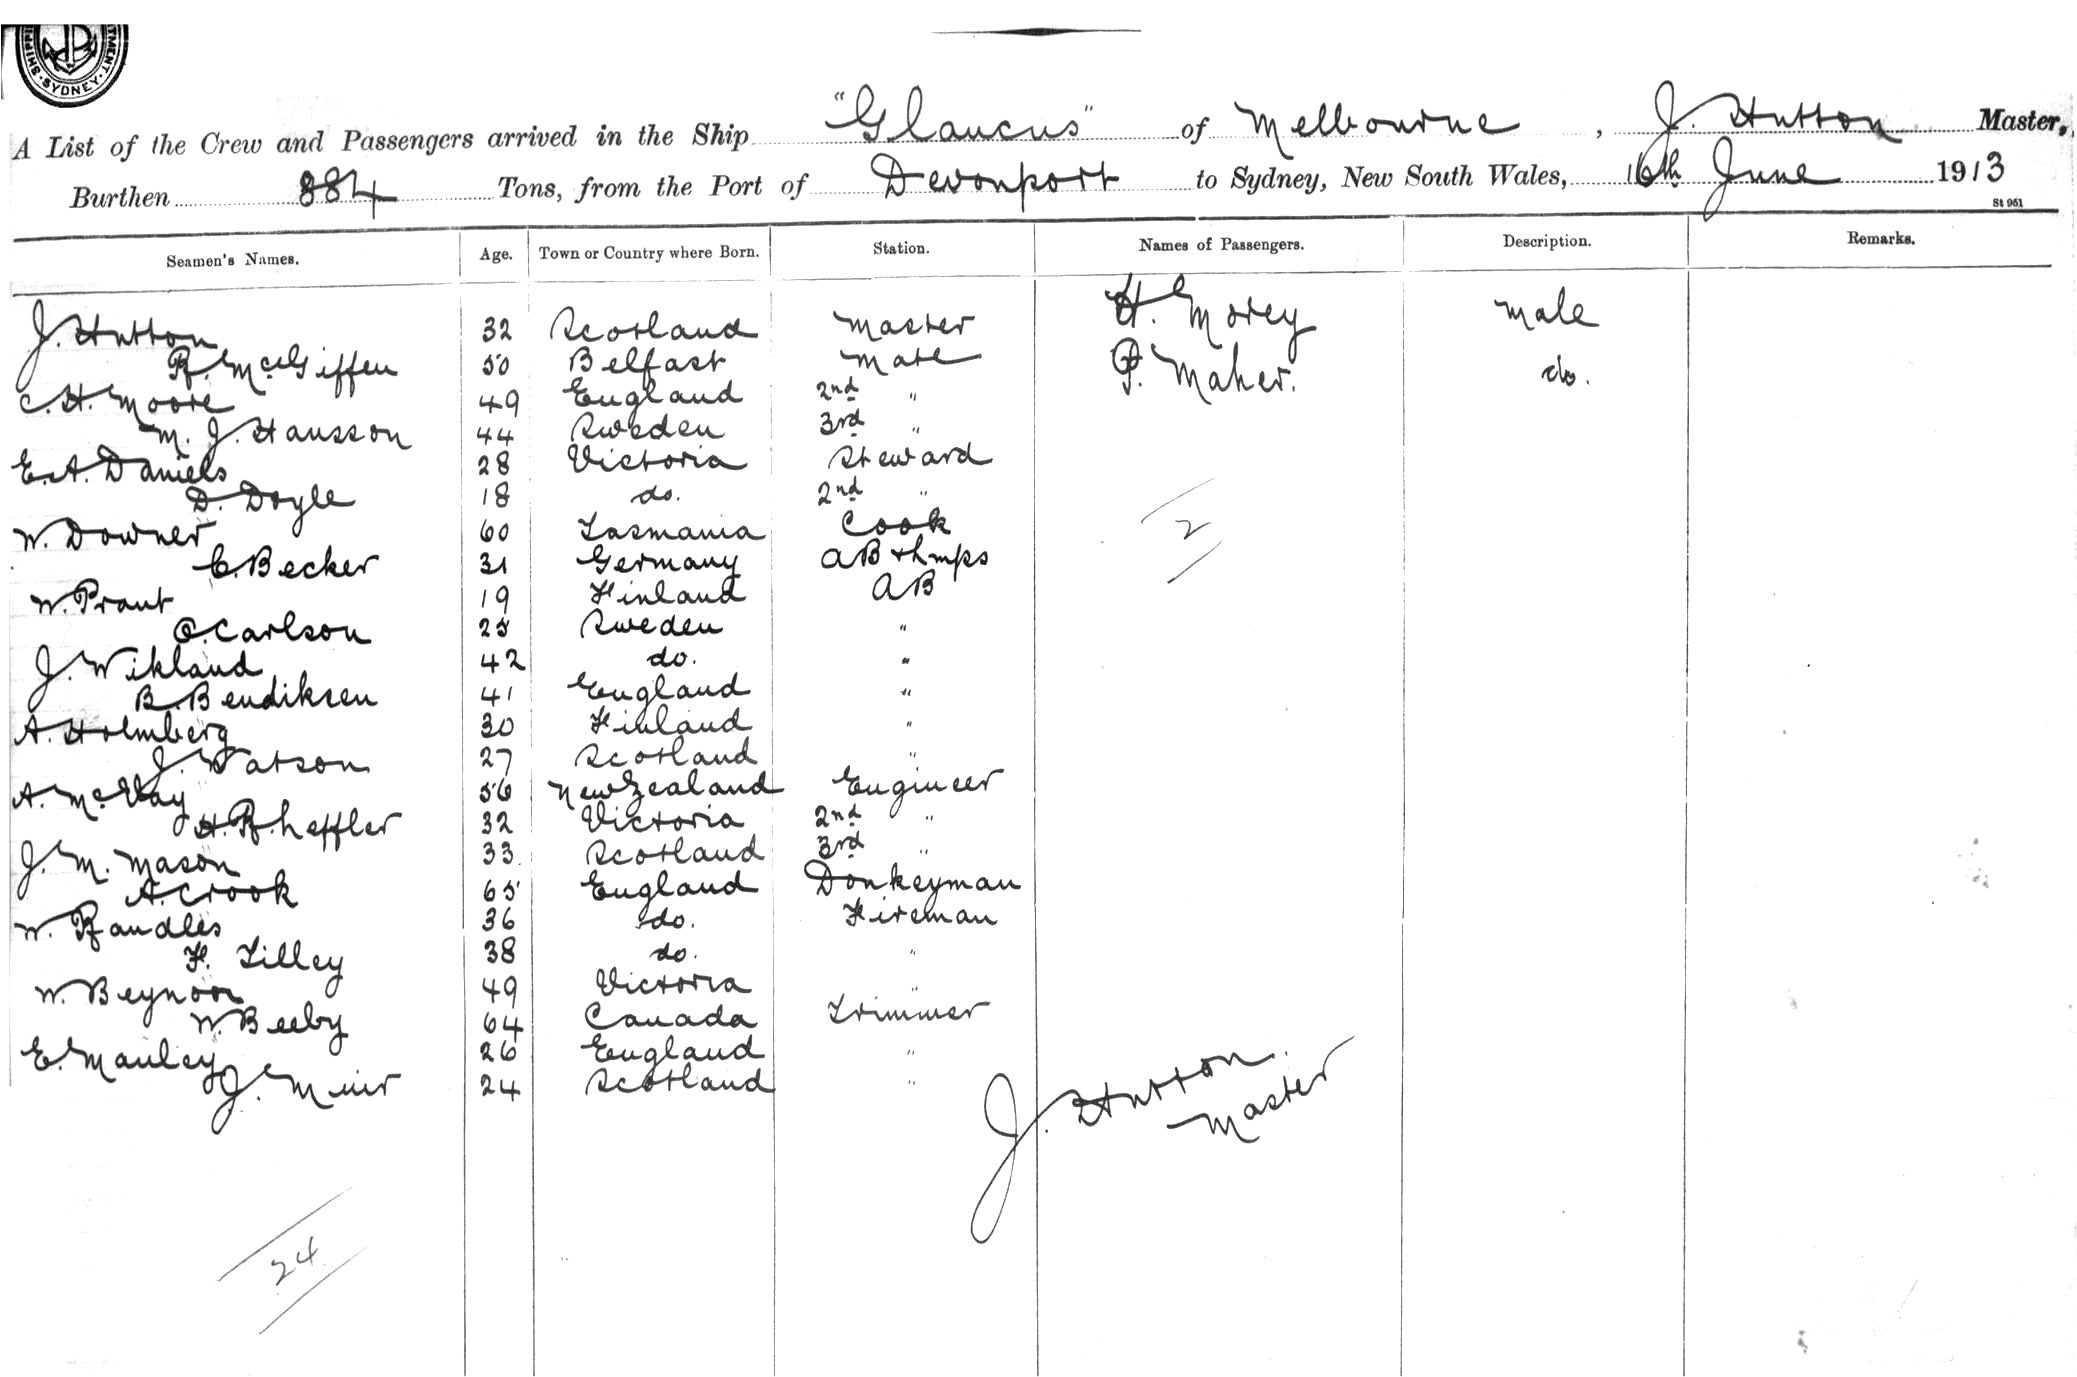 SHIPPI TMENT · SYDNEY ·
A List of the Crew and Passengers arrived in the Ship "Glaucus" of Melbourne, J. Hutton Master,
Burthen 884 Tons, from the Port of Devonport to Sydney, New South Wales, 16th June 1913
St 951
Seamen's Names. Age. Town or Country where Born. Station. Names of Passengers. Description. Remarks.
J. Hutton 32 Scotland Master H. Morey Male
R. McGiffen 50 Belfast Mate P. Maher. do.
C. H. Moore 49 England 2nd "
M. J. Hansson 44 Sweden 3rd "
E. A. Daniels 28 Victoria Steward
D. Doyle 18 do. 2nd "
W. Downer 60 Tasmania Cook
C. Becker 31 Germany AB & Lmps
W. Prant 19 Finland AB
O. Carlson 25 Sweden "
J. Wikland 42 do. "
B. Bendiksen 41 England "
A. Holmberg 30 Finland "
J. Watson 27 Scotland "
A. McVay 56 New Zealand Engineer
H. R. heffler 32 Victoria 2nd "
J. M. Mason 33 Scotland 3rd "
A. Crook 65 England Donkeyman
W. Randles 36 do. Fireman
F. Tilley 38 do. "
W. Beynon 49 Victoria "
W. Beeby 64 Canada Trimmer
E. Manley 26 England "
J. Muir 24 Scotland "
2
J. Hutton
Master
24